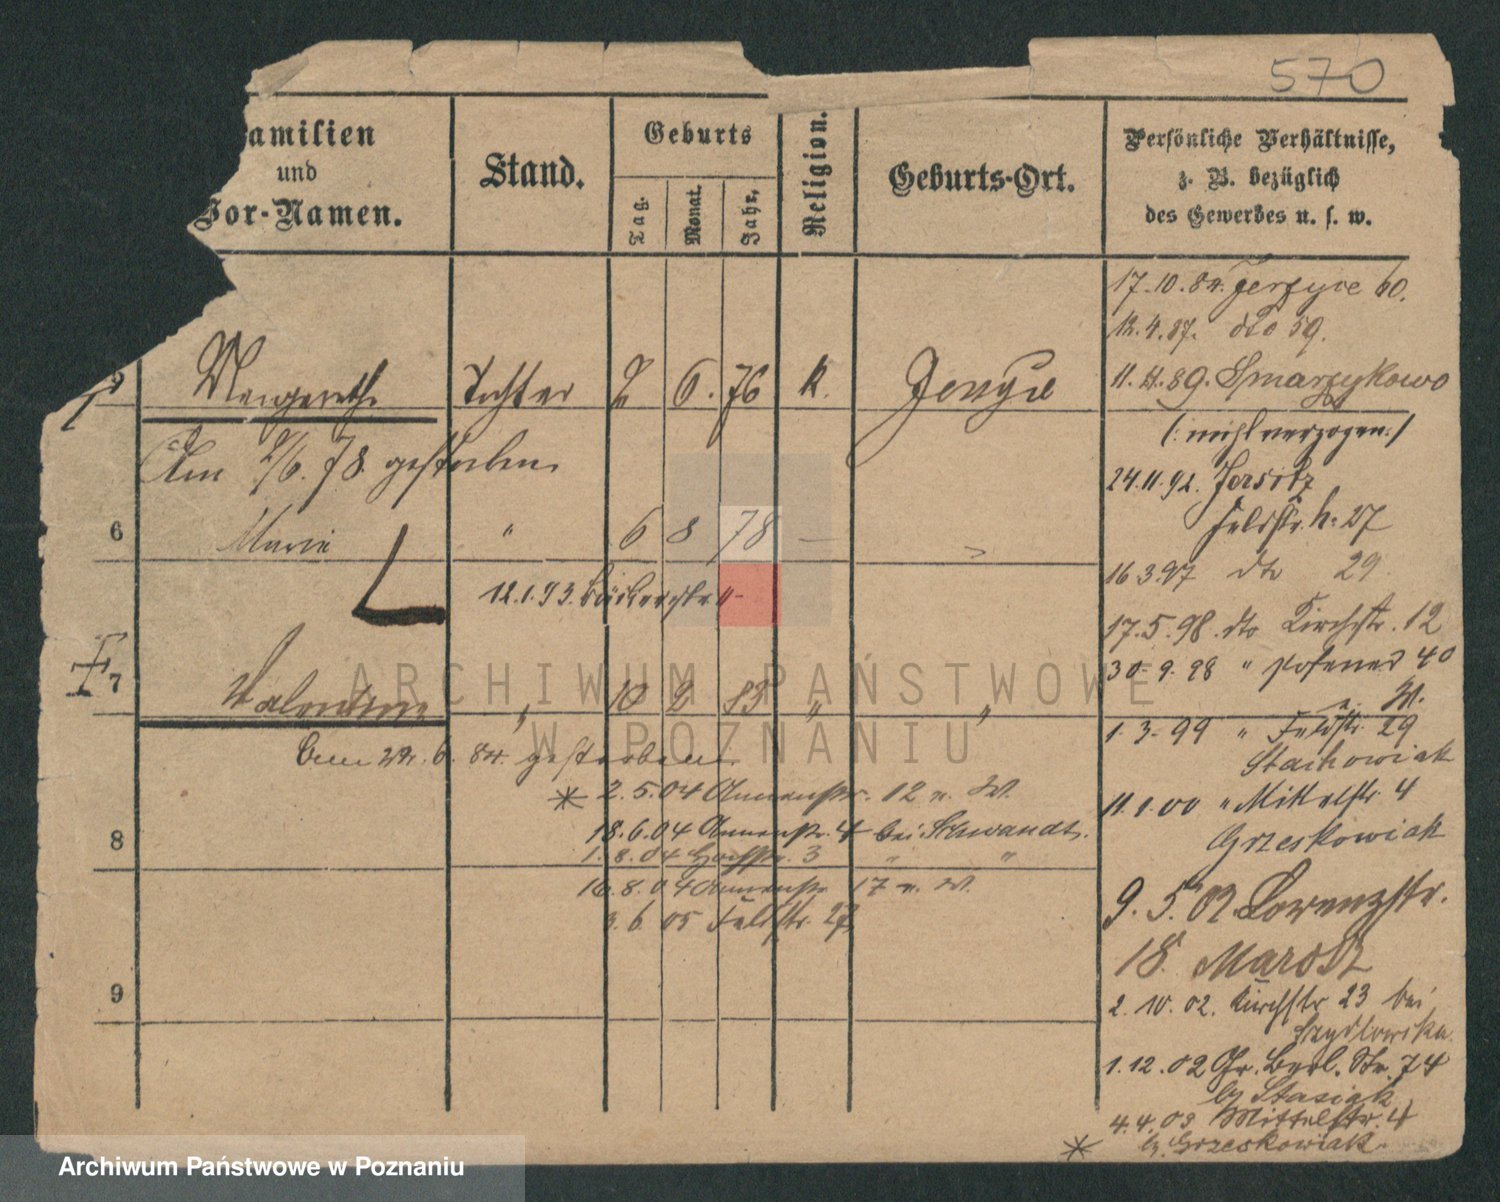 570
Familien
und
Vor-Namen.
Stand.
Geburts
Tag.
Monat.
Jahr,
Religion.
Geburts-Ort.
Persönliche Verhältnisse,
z. B. bezüglich
des Gewerbes u. s. w.
17.10.84. Jerzyce 60.
12.4.87. dto 59.
11. 11. 89. Smarzykowo
(: nicht verzogen :)
Margareth Tochter 2 6. 76 k.
Am 2/6. 78. gestorben
24.11.92. Jersitz
Feldstr. 27
6 Marie " 6 8 78 —
16 3.97 dto 29
12.1.93. Bäckerstr.
17.5.98. dto Kirchstr. 12
7 Valentina " 10 2 83 " "
30.9.98 " Posener 40
n. W.
1. 3. 99 " Feldstr. 29
Stachowiak
gestorben
* 2.5.04 Annenstr. 12 n. W.
11.1.00 " Mittelstr. 4
Grzeskowiak
8
18.6.04 Annenstr. 4 bei Schwandt.
1.8.04 3 " "
16.8.04 Annenstr 17 n. W.
3.6.05 Feldstr. 27
9.5.02. Lorenzstr.
18.
9
2.10.02. Kirchstr 23 bei
Szydlowska
1.12.02 Gr. Berl. Str. 74
by Stasiak
4.4.03 Mittelstr. 4
* by. Grzeskowiak
ARCHIWUM PAŃSTWOWE
W POZNANIU
Archiwum Państwowe w Poznaniu